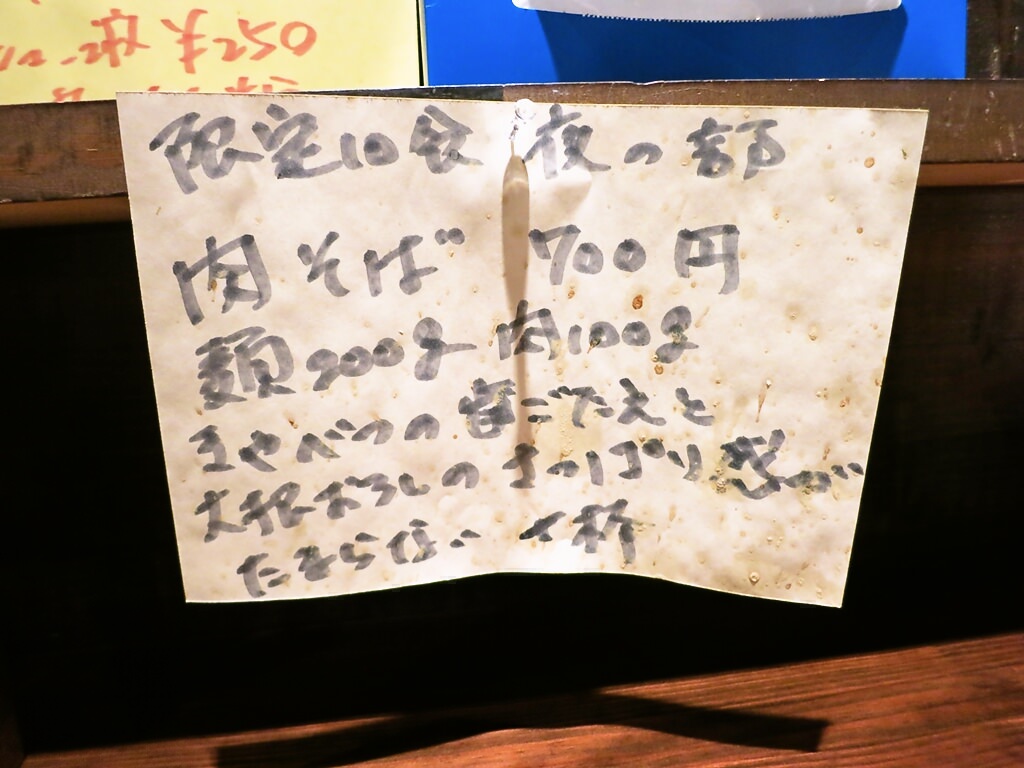 ¥250
限定10食 夜の部
肉そば 700円
麺200g 肉100g
キャベツの歯ごたえと
大根おろしのさっぱり感が
たまらない一杯